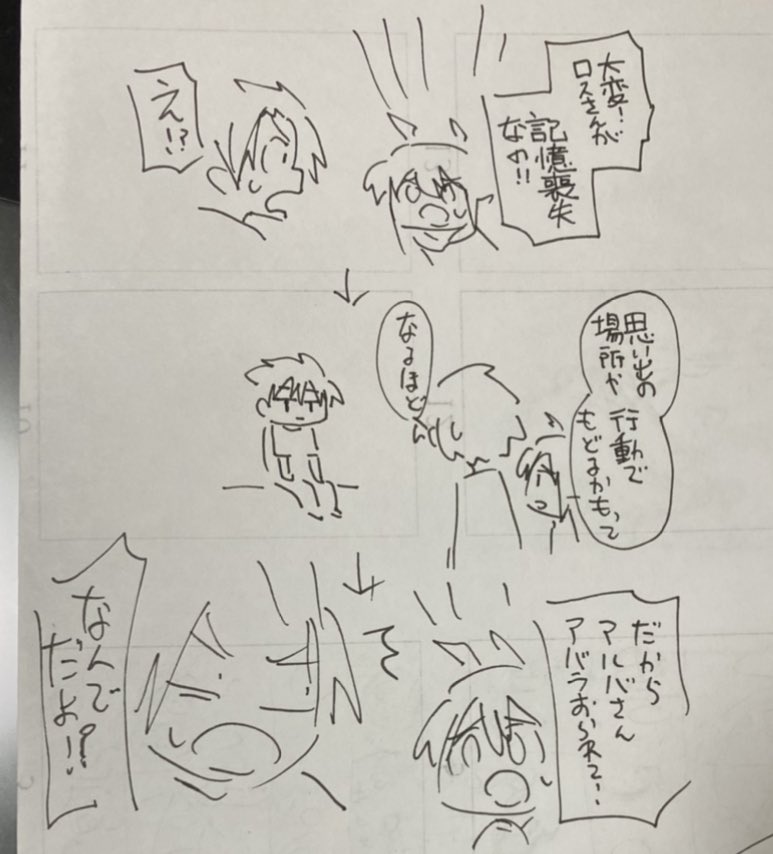 大変!
ロスさんが
記憶喪失
なの!!
え!?
思い出の
場所や
行動で
もどるかもって
なるほど
だから
マルバさん
アバラおられて!
なんで
だよ!?